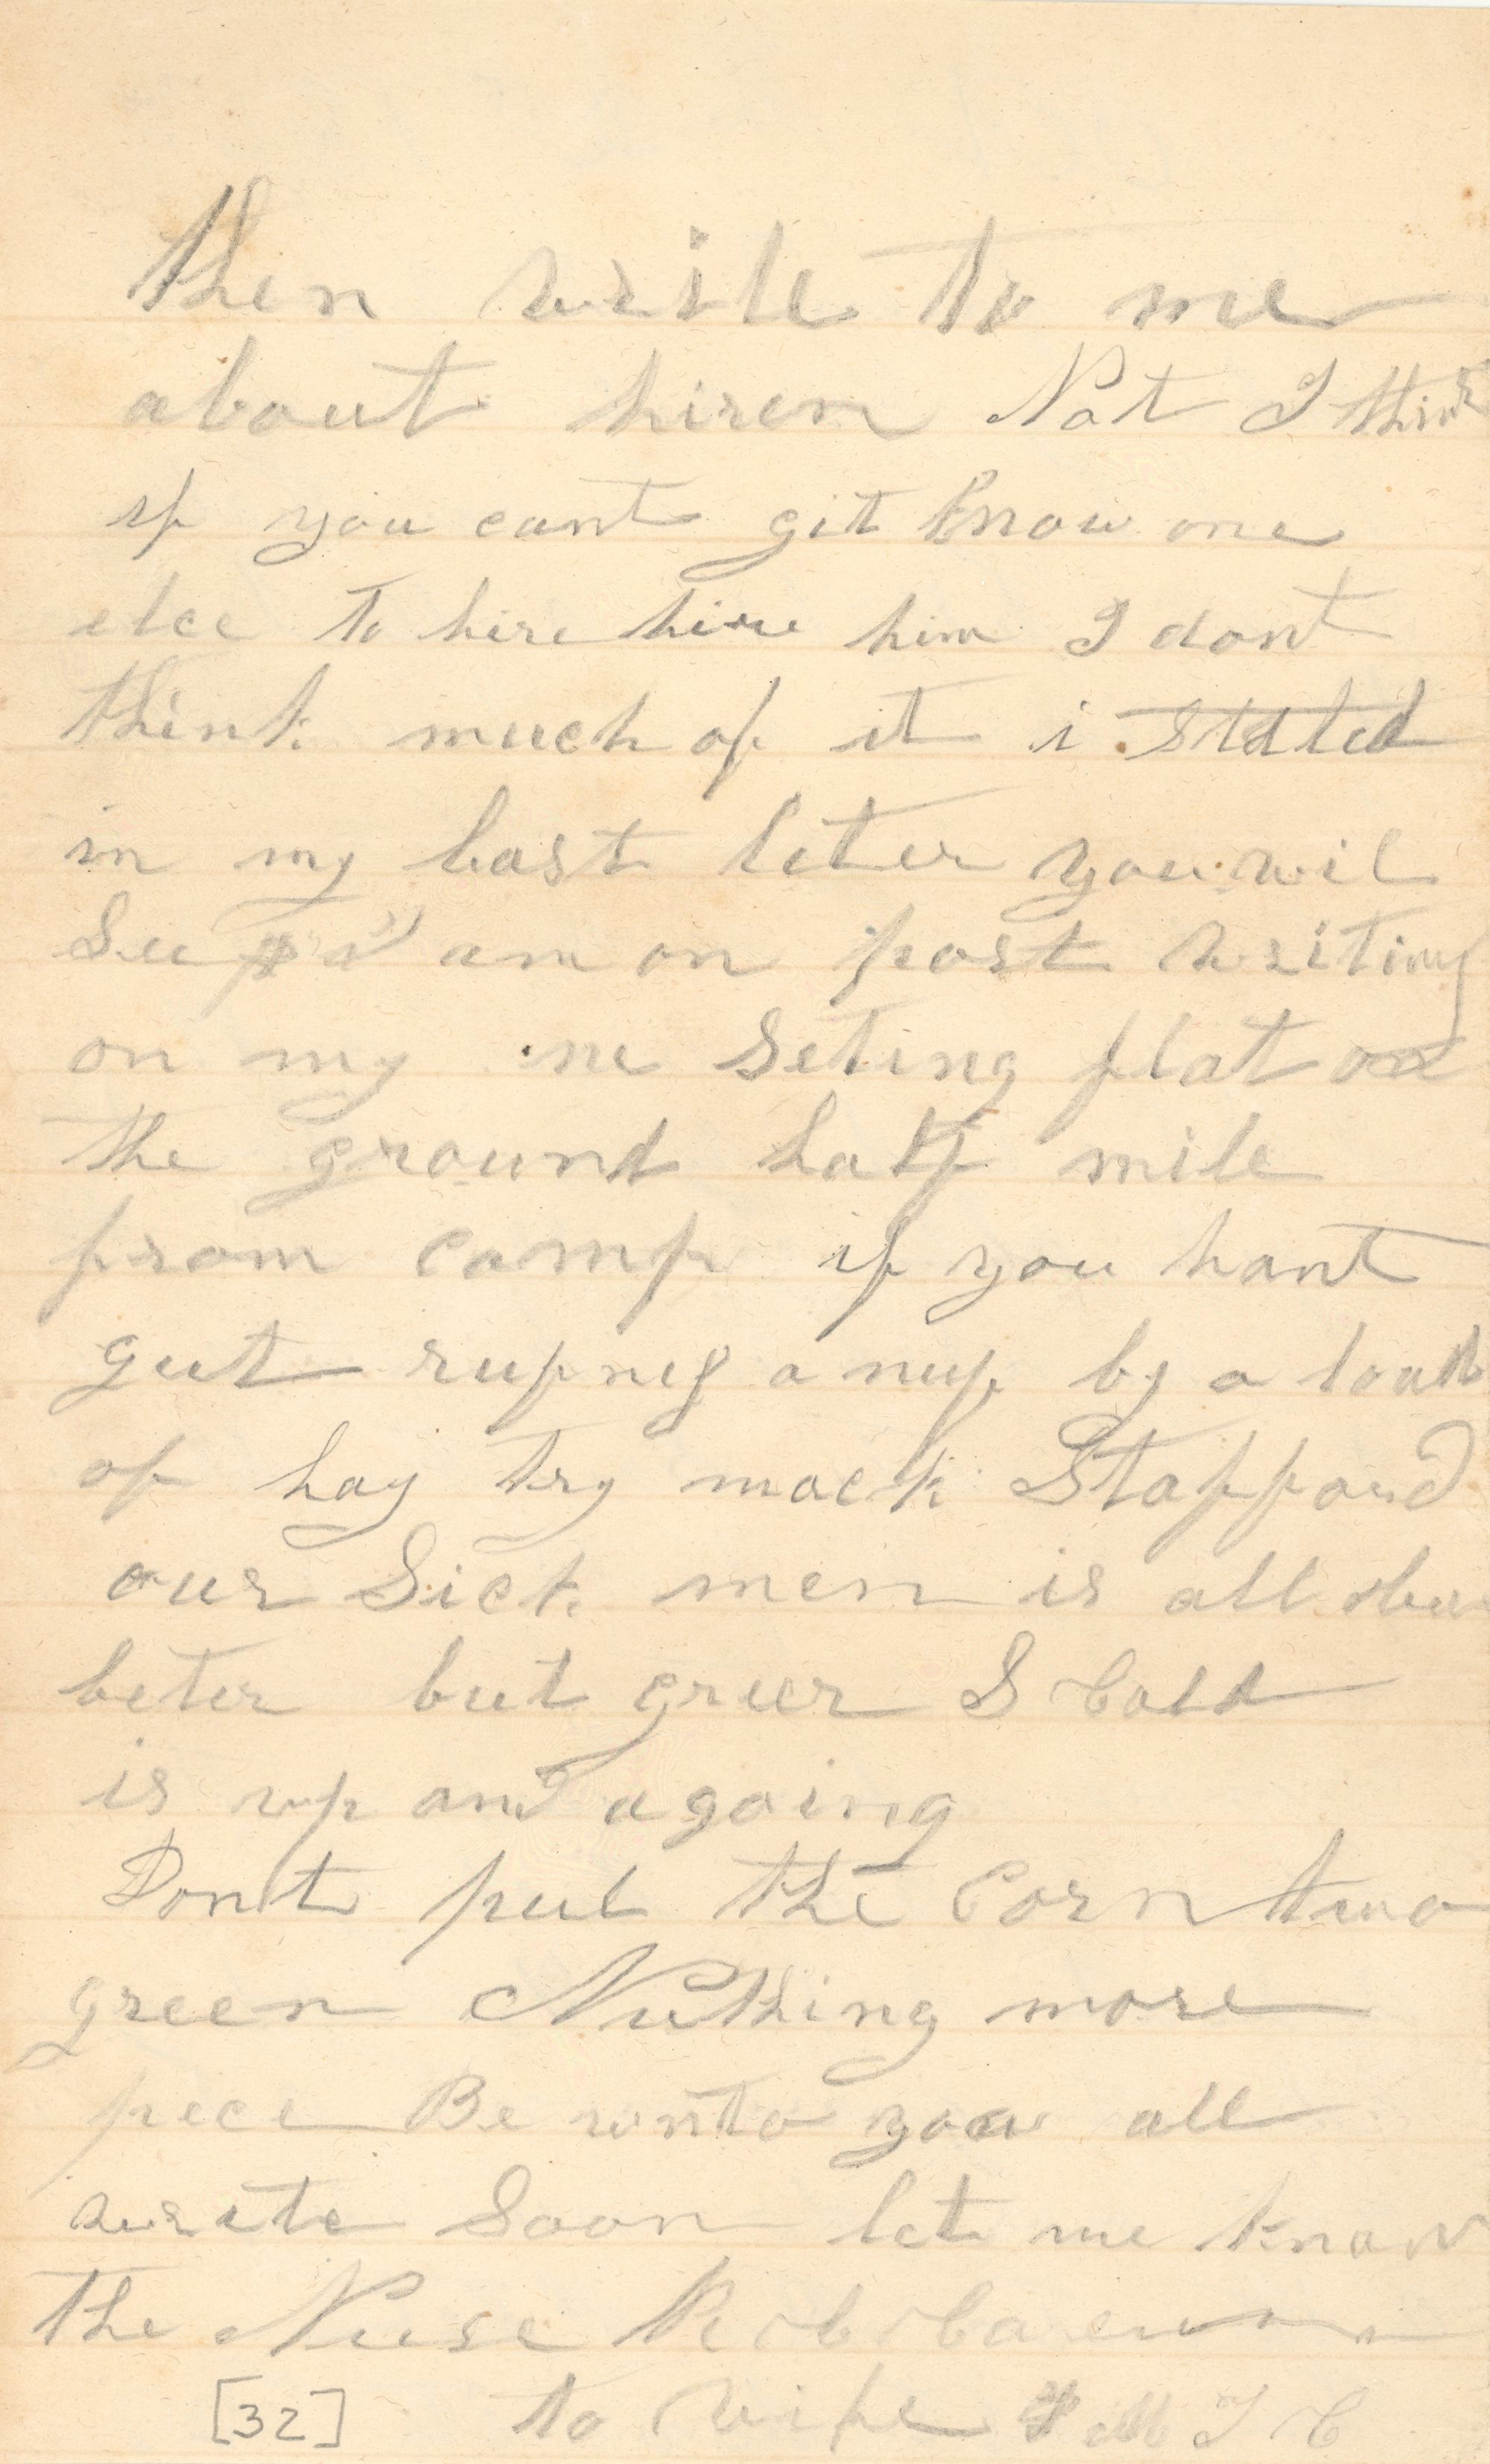 then write to me
about hiren Nat I think
if you cant git know one
elce to hire hire him I dont
think much of it i stated
in my last leter you wil
See I am on post writing
on my ne Seting flat on
the ground half mile
from camp if you hant
gut a nuf by a load
of hay try mack Stafford
our Sick men is all
beter but greer S Cobb
is up and agoing
Dont pul the Corn two
green Nuthing more
pece Be unto you all
write Soon let me know
the Nuse R C
to wife M J C
[32]